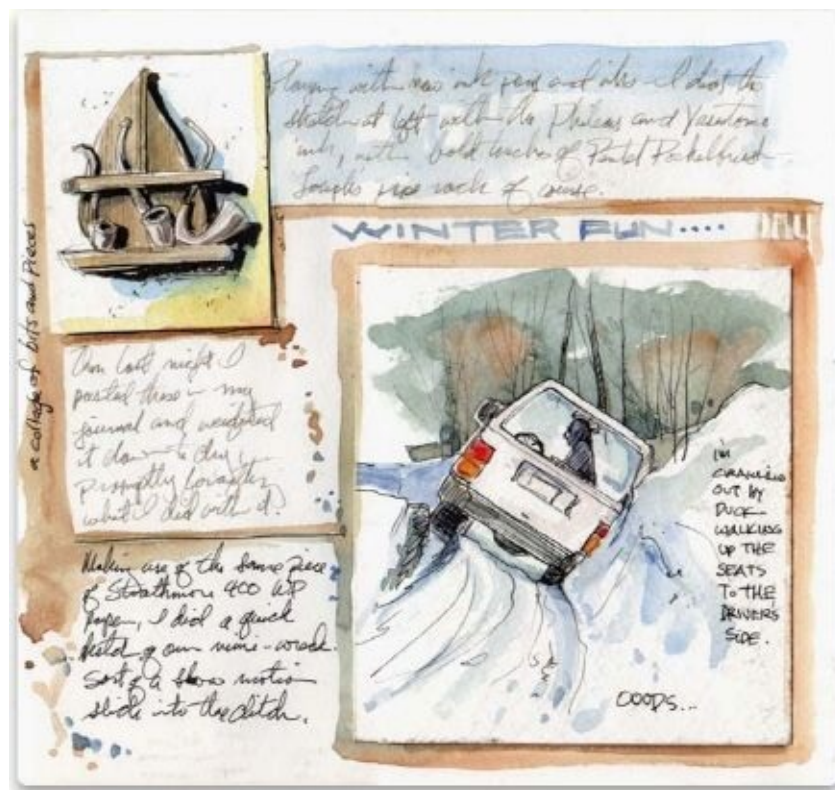 Playing with new ink pens and inks - I did the
sketch at left with the Phileas and Yasutomo
ink, with bold touches of Pentel Pocketbrush
Joseph's pipe rack of course.
WINTER FUN....
a collage of bits and pieces
Then last night I
pasted those in my
journal and weighted
it down to dry,
promptly forgetting
what I did with it!
Making use of the same piece
of Strathmore 400 WP
paper, I did a quick
sketch of our mini-wreck.
Sort of a slow motion
slide into the ditch.
I'M
CRAWLING
OUT BY
DUCK
WALKING
UP THE
SEATS
TO THE
DRIVERS
SIDE.
OOOPS...